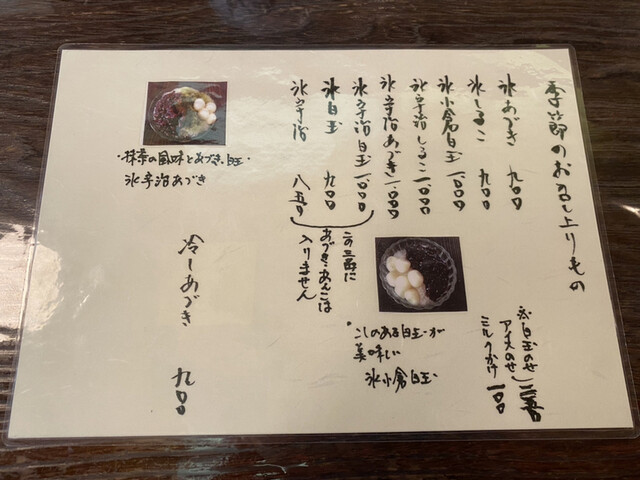 季節のお召し上りもの
氷あづき 九〇〇
氷しるこ 九〇〇
氷小倉白玉 一〇〇〇
氷宇治しるこ 一〇〇〇
氷宇治あづき 一〇〇〇
氷宇治白玉 一〇〇〇
氷白玉 九〇〇
氷宇治 八五〇
この三點に
あづき・あんこは
入りません
白玉のせ
アイスのせ
ミルクかけ 一〇〇
こしのある白玉が
美味しい
氷小倉白玉
抹茶の風味とあづき、白玉
氷宇治あづき
冷しあづき 九〇〇